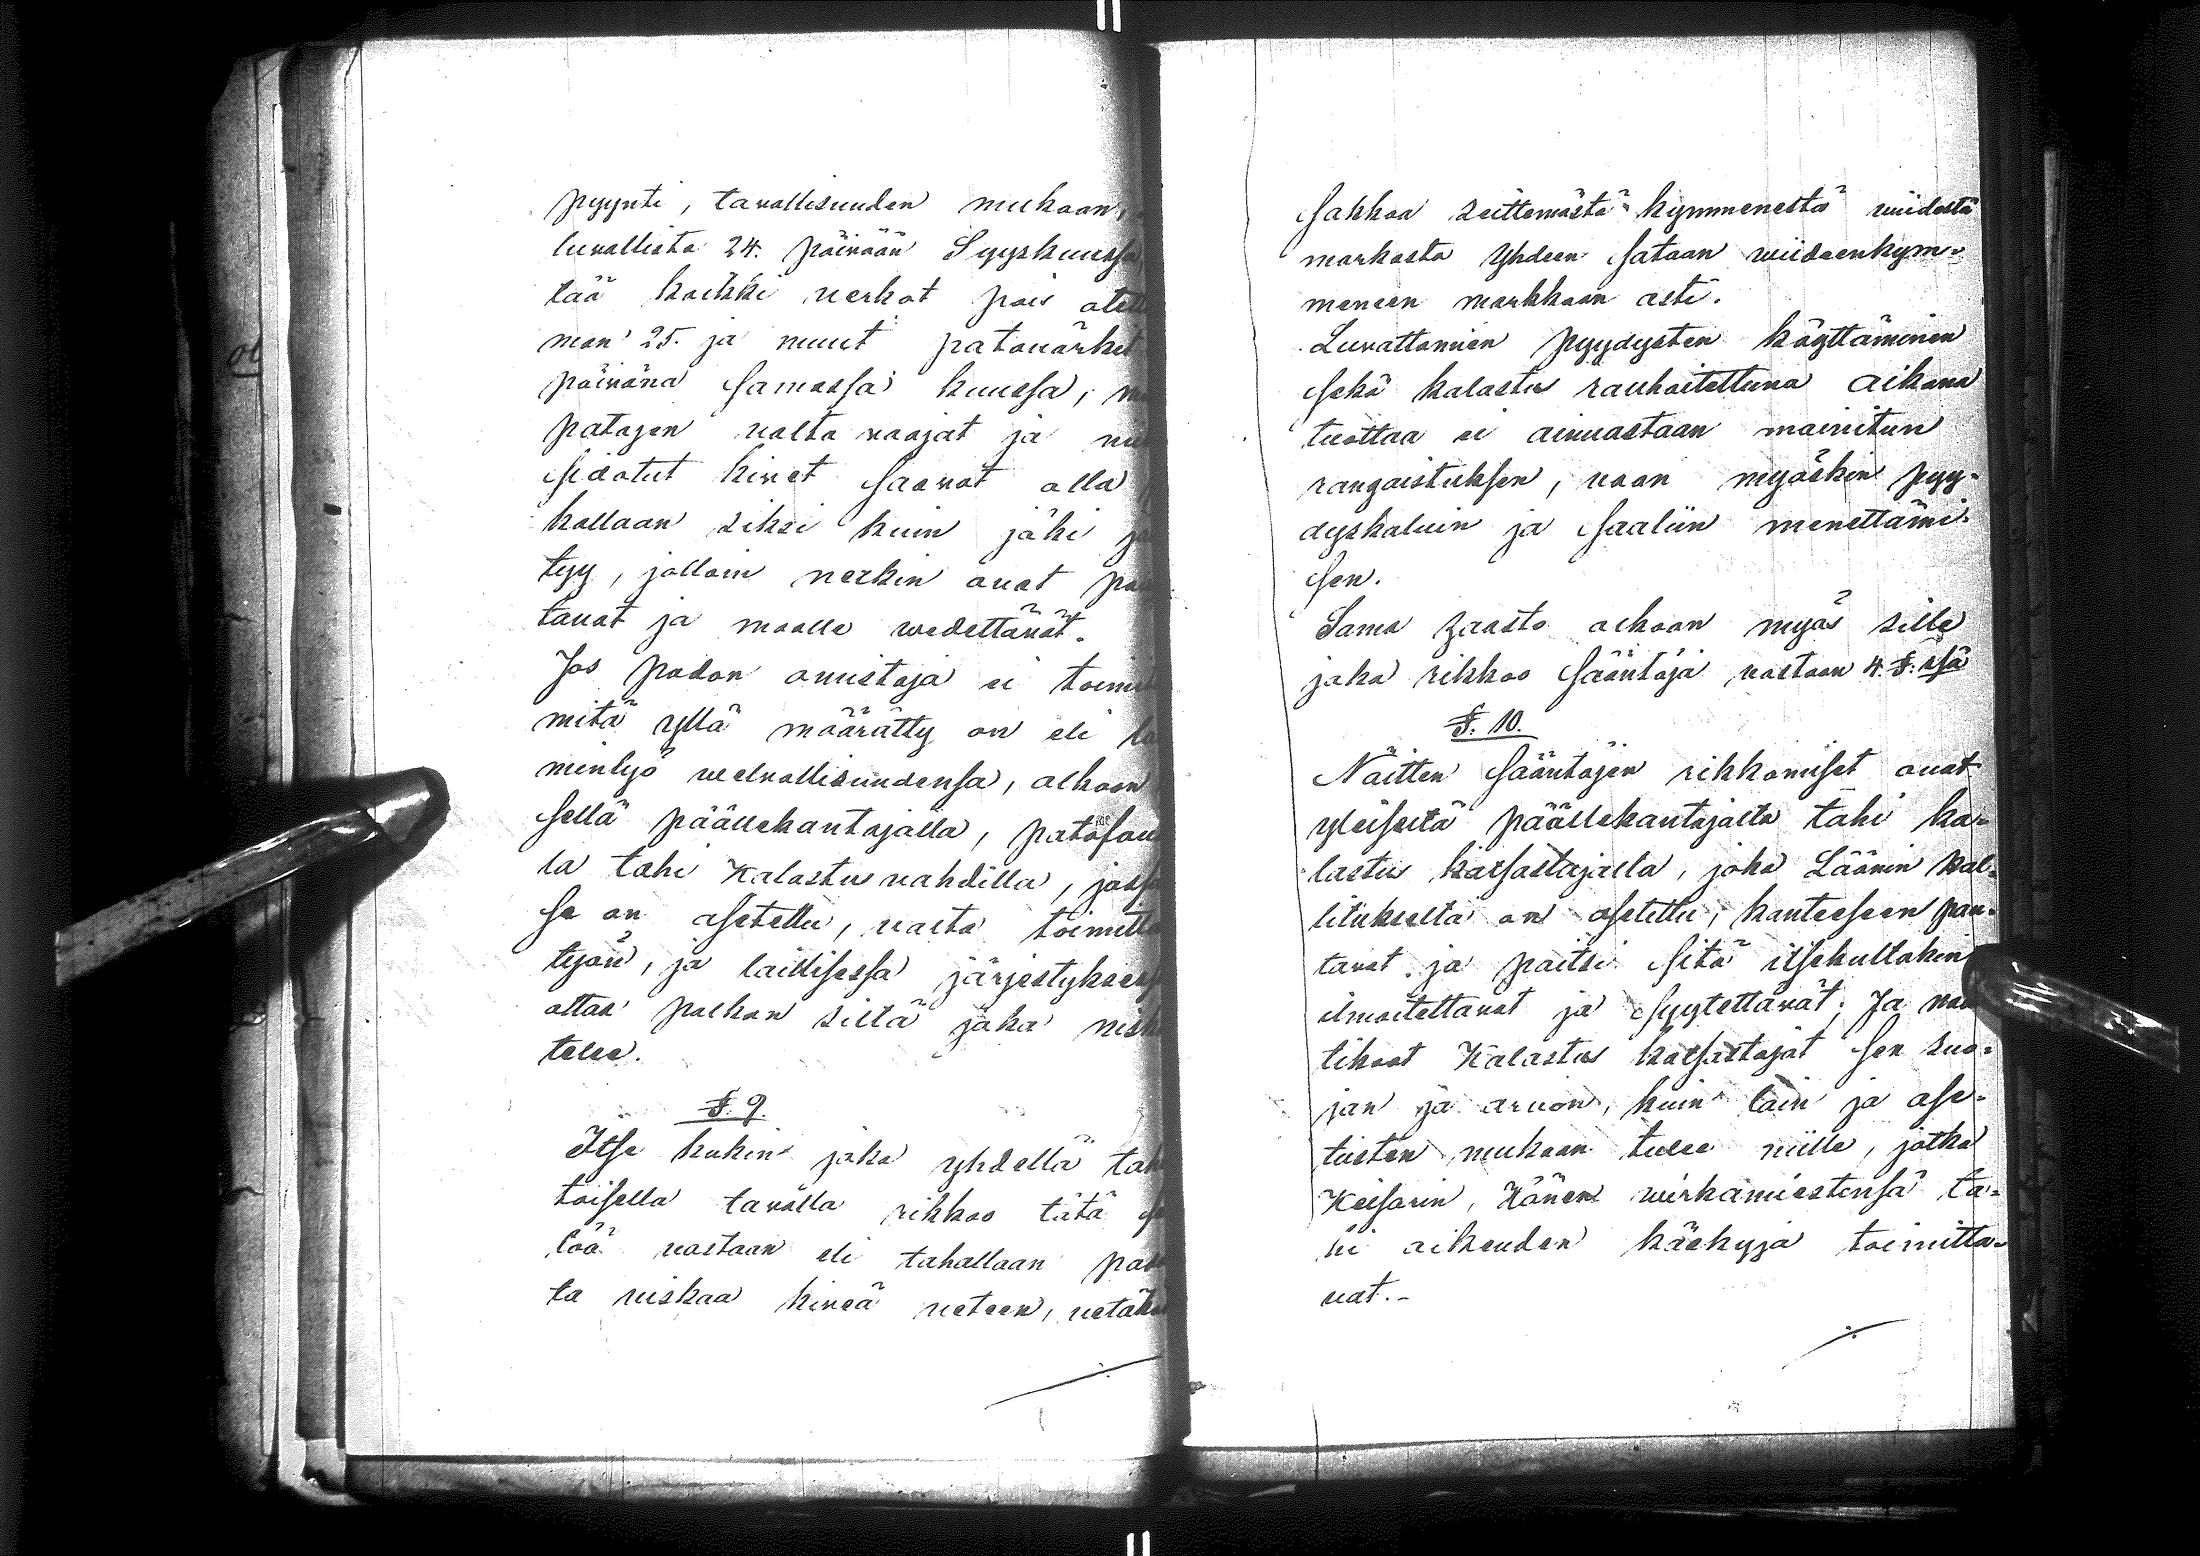 pyynti, tavallisuuden mukaan,
luvallista 24. päivään Syyskuussa
tää kaikki verkot pois otet
man 25. ja muut patovärkit
päivänä samassa kuussa,
patojen valta vaajat ja
sidotut kivet saavat olla
kallaan siksi kuin jäki
tyy, jolloin nerkin ovat
tavat ja maalle wedettävät.
Jos padon omistaja ei toimi
mitä yllä määrätty on eli
minlyö velvollisuudensa, alkoon
sellä päällekantajalla, patofou
la tahi Kalastus vahdilla, jossa
se on asetettu, valta toimitta
työn, ja laillisessa järjestykses
ottaa palkan siltä joka nisk
telee.
§. 9.
Itse kukin joka yhdellä tah
toisella tavalla rikkoo tätä
töä vastaan eli tahallaan pat
ta viskaa kiveä veteen, vetäk
Sakkoa seittemästä kymmenestä viidestä
markasta Yhdeen sataan wiideenkym-
meneen markkaan asti.
Luvattomien pyydysten käyttäminen
sekä kalastus rauhoitettuna aikana
tuottaa ei ainuastaan mainitun
rangaistuksen, vaan myöskin pyy-
dyskaluin ja saaliin menettämi-
sen.
Sama zaasto olkoon myös sille
joka rikkoo sääntöjä vastaan 4. §:ssä
§. 10.
Näitten sääntöjen rikkomiset ovat
yleiseltä päällekantajalta tahi ka-
lastus katsastajalta, joka Läänin hal-
litukselta on asetettu, kanteeseen pan-
tavat ja paitsi sitä itsekultakin
ilmoitettavat ja syytettävät; Ja
tikoot Kalastus katsastajat sen suo-
jan ja arvon, kuin lain ja ase-
tusten mukaan tulee niille, jotka
Keisarin, Hänen wirkamiestensä ta-
hi oikeuden käskyjä toimitta-
vat.-